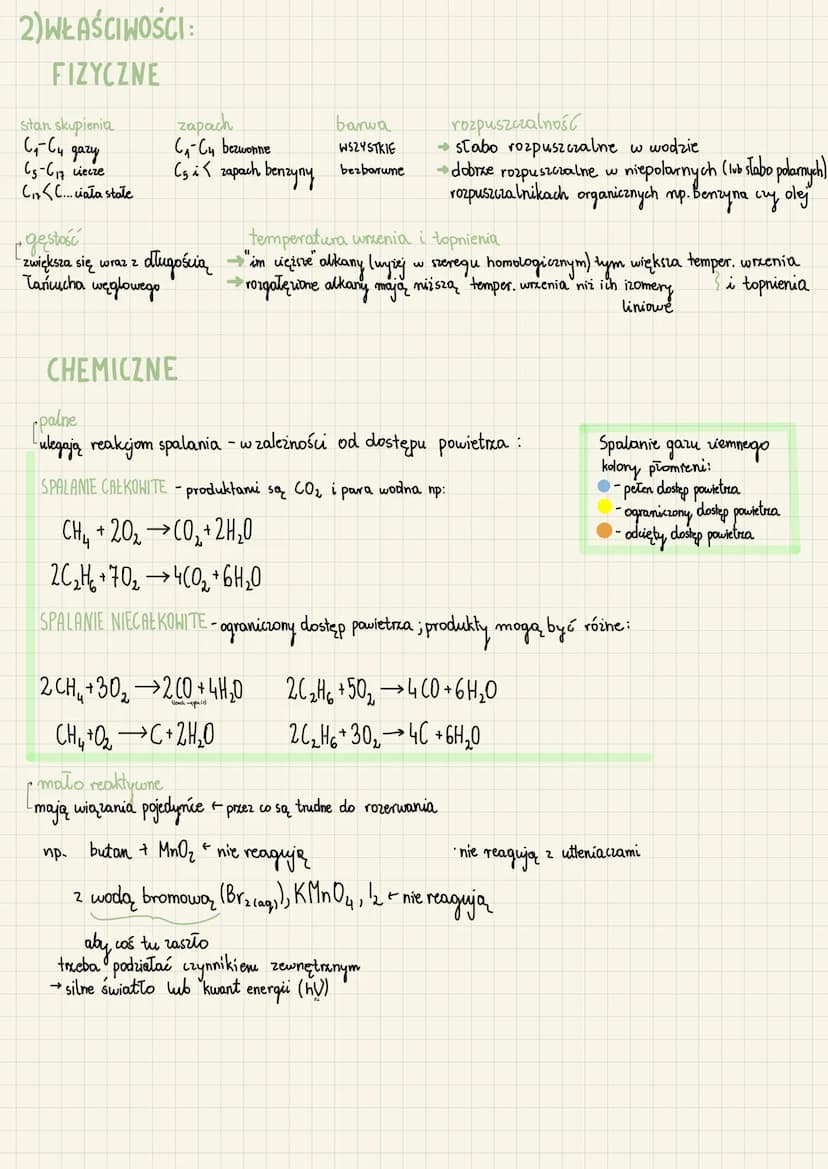 2) WŁAŚCIWOŚCI:
FIZYCZNE
stan skupienia
C₁-C₄ gazy
C₅-C₁₇ ciecze
C₁₇<C... ciała stałe
zapach
C₁-C₄ bezwonne
C₅ i < zapach benzyny
barwa
WSZYSTKIE
bezbarwne
rozpuszczalność
→ słabo rozpuszczalne w wodzie
→ dobrze rozpuszczalne w niepolarnych (lub słabo polarnych)
rozpuszczalnikach organicznych np. benzyna czy olej
gęstość
zwiększa się wraz z długością
łańcucha węglowego
temperatura wrzenia i topnienia
→ "im cięższe" alkany (wyżej w szeregu homologicznym) tym większa temper. wrzenia
i topnienia
→ rozgałęzione alkany mają niższą temper. wrzenia niż ich izomery
liniowe
CHEMICZNE
palne
ulegają reakcjom spalania - w zależności od dostępu powietrza :
SPALANIE CAŁKOWITE - produktami są CO₂ i para wodna np:
CH₄ + 2O₂ → CO₂ + 2H₂O
2C₂H₆ + 7O₂ → 4CO₂ + 6H₂O
Spalanie gazu ziemnego
kolory płomieni:
- pełen dostęp powietrza
- ograniczony dostęp powietrza
- odcięty dostęp powietrza
SPALANIE NIECAŁKOWITE - ograniczony dostęp powietrza ; produkty mogą być różne:
2CH₄ + 3O₂ → 2CO + 4H₂O
2C₂H₆ + 5O₂ → 4CO + 6H₂O
CH₄ + O₂ → C + 2H₂O
2C₂H₆ + 3O₂ → 4C + 6H₂O
mało reaktywne
mają wiązania pojedyńcze ← przez co są trudne do rozerwania
np. butan + MnO₂ ← nie reagują
· nie reagują z utleniaczami
z wodą bromową (Br₂(aq)), KMnO₄, I₂ ← nie reagują
aby coś tu zaszło
trzeba podziałać czynnikiem zewnętrznym
→ silne światło lub kwant energii (hν)